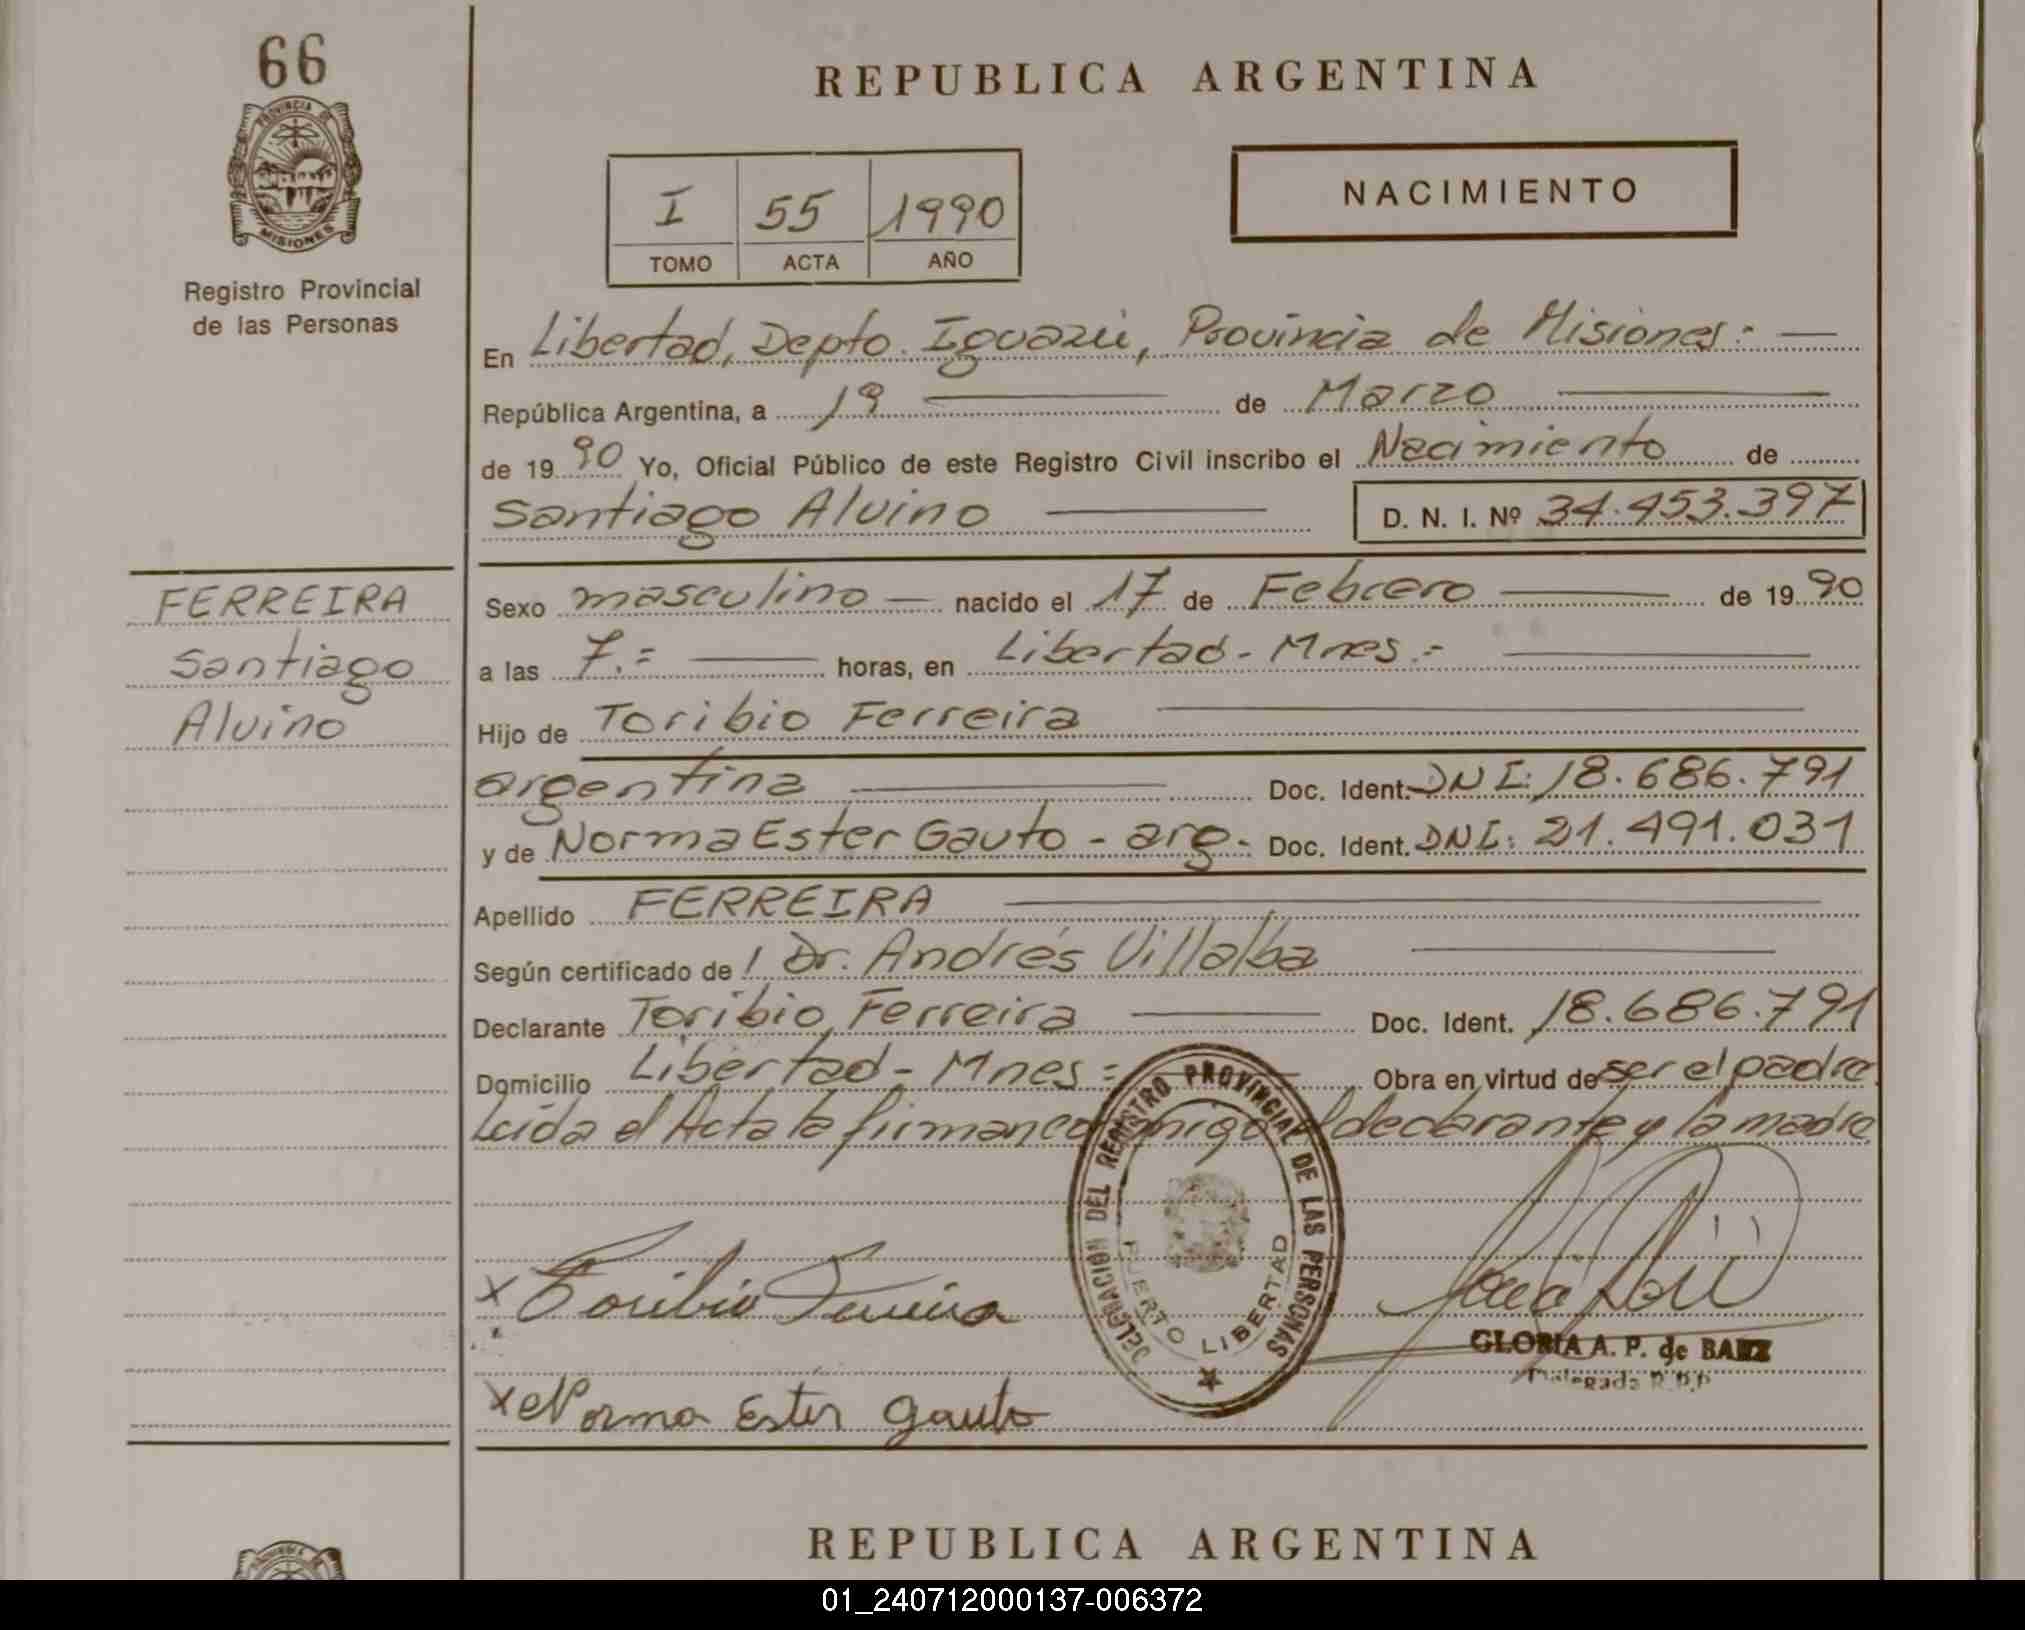 66
PROVINCIA DE
MISIONES
Registro Provincial
de las Personas
REPUBLICA ARGENTINA
I 55 1990
TOMO ACTA AÑO
NACIMIENTO
En Libertad, Depto. Iguazú, Provincia de Misiones:-
República Argentina, a 19 de Marzo
de 1990 Yo, Oficial Público de este Registro Civil inscribo el Nacimiento de
Santiago Alvino D. N. I. Nº 34.453.397
FERREIRA
Santiago
Alvino
Sexo masculino nacido el 17 de Febrero de 1990
a las 7.= horas, en Libertad - Mnes.-
Hijo de Toribio Ferreira
argentina Doc. Ident. DNI: 18.686.791
y de Norma Ester Gauto - arg.- Doc. Ident. DNI: 21.491.031
Apellido FERREIRA
Según certificado de / Dr. Andrés Villalba
Declarante Toribio Ferreira Doc. Ident. 18.686.791
Domicilio Libertad - Mnes = Obra en virtud de ser el padre.
Leída el Acta la firman conmigo el declarante y la madre
DELEGACION DEL REGISTRO PROVINCIAL DE LAS PERSONAS
PUERTO LIBERTAD
x Toribio Ferreira
GLORIA A. P. de BAEZ
Delegada R.P.P.
x Norma Ester Gauto
REPUBLICA ARGENTINA
01_240712000137-006372